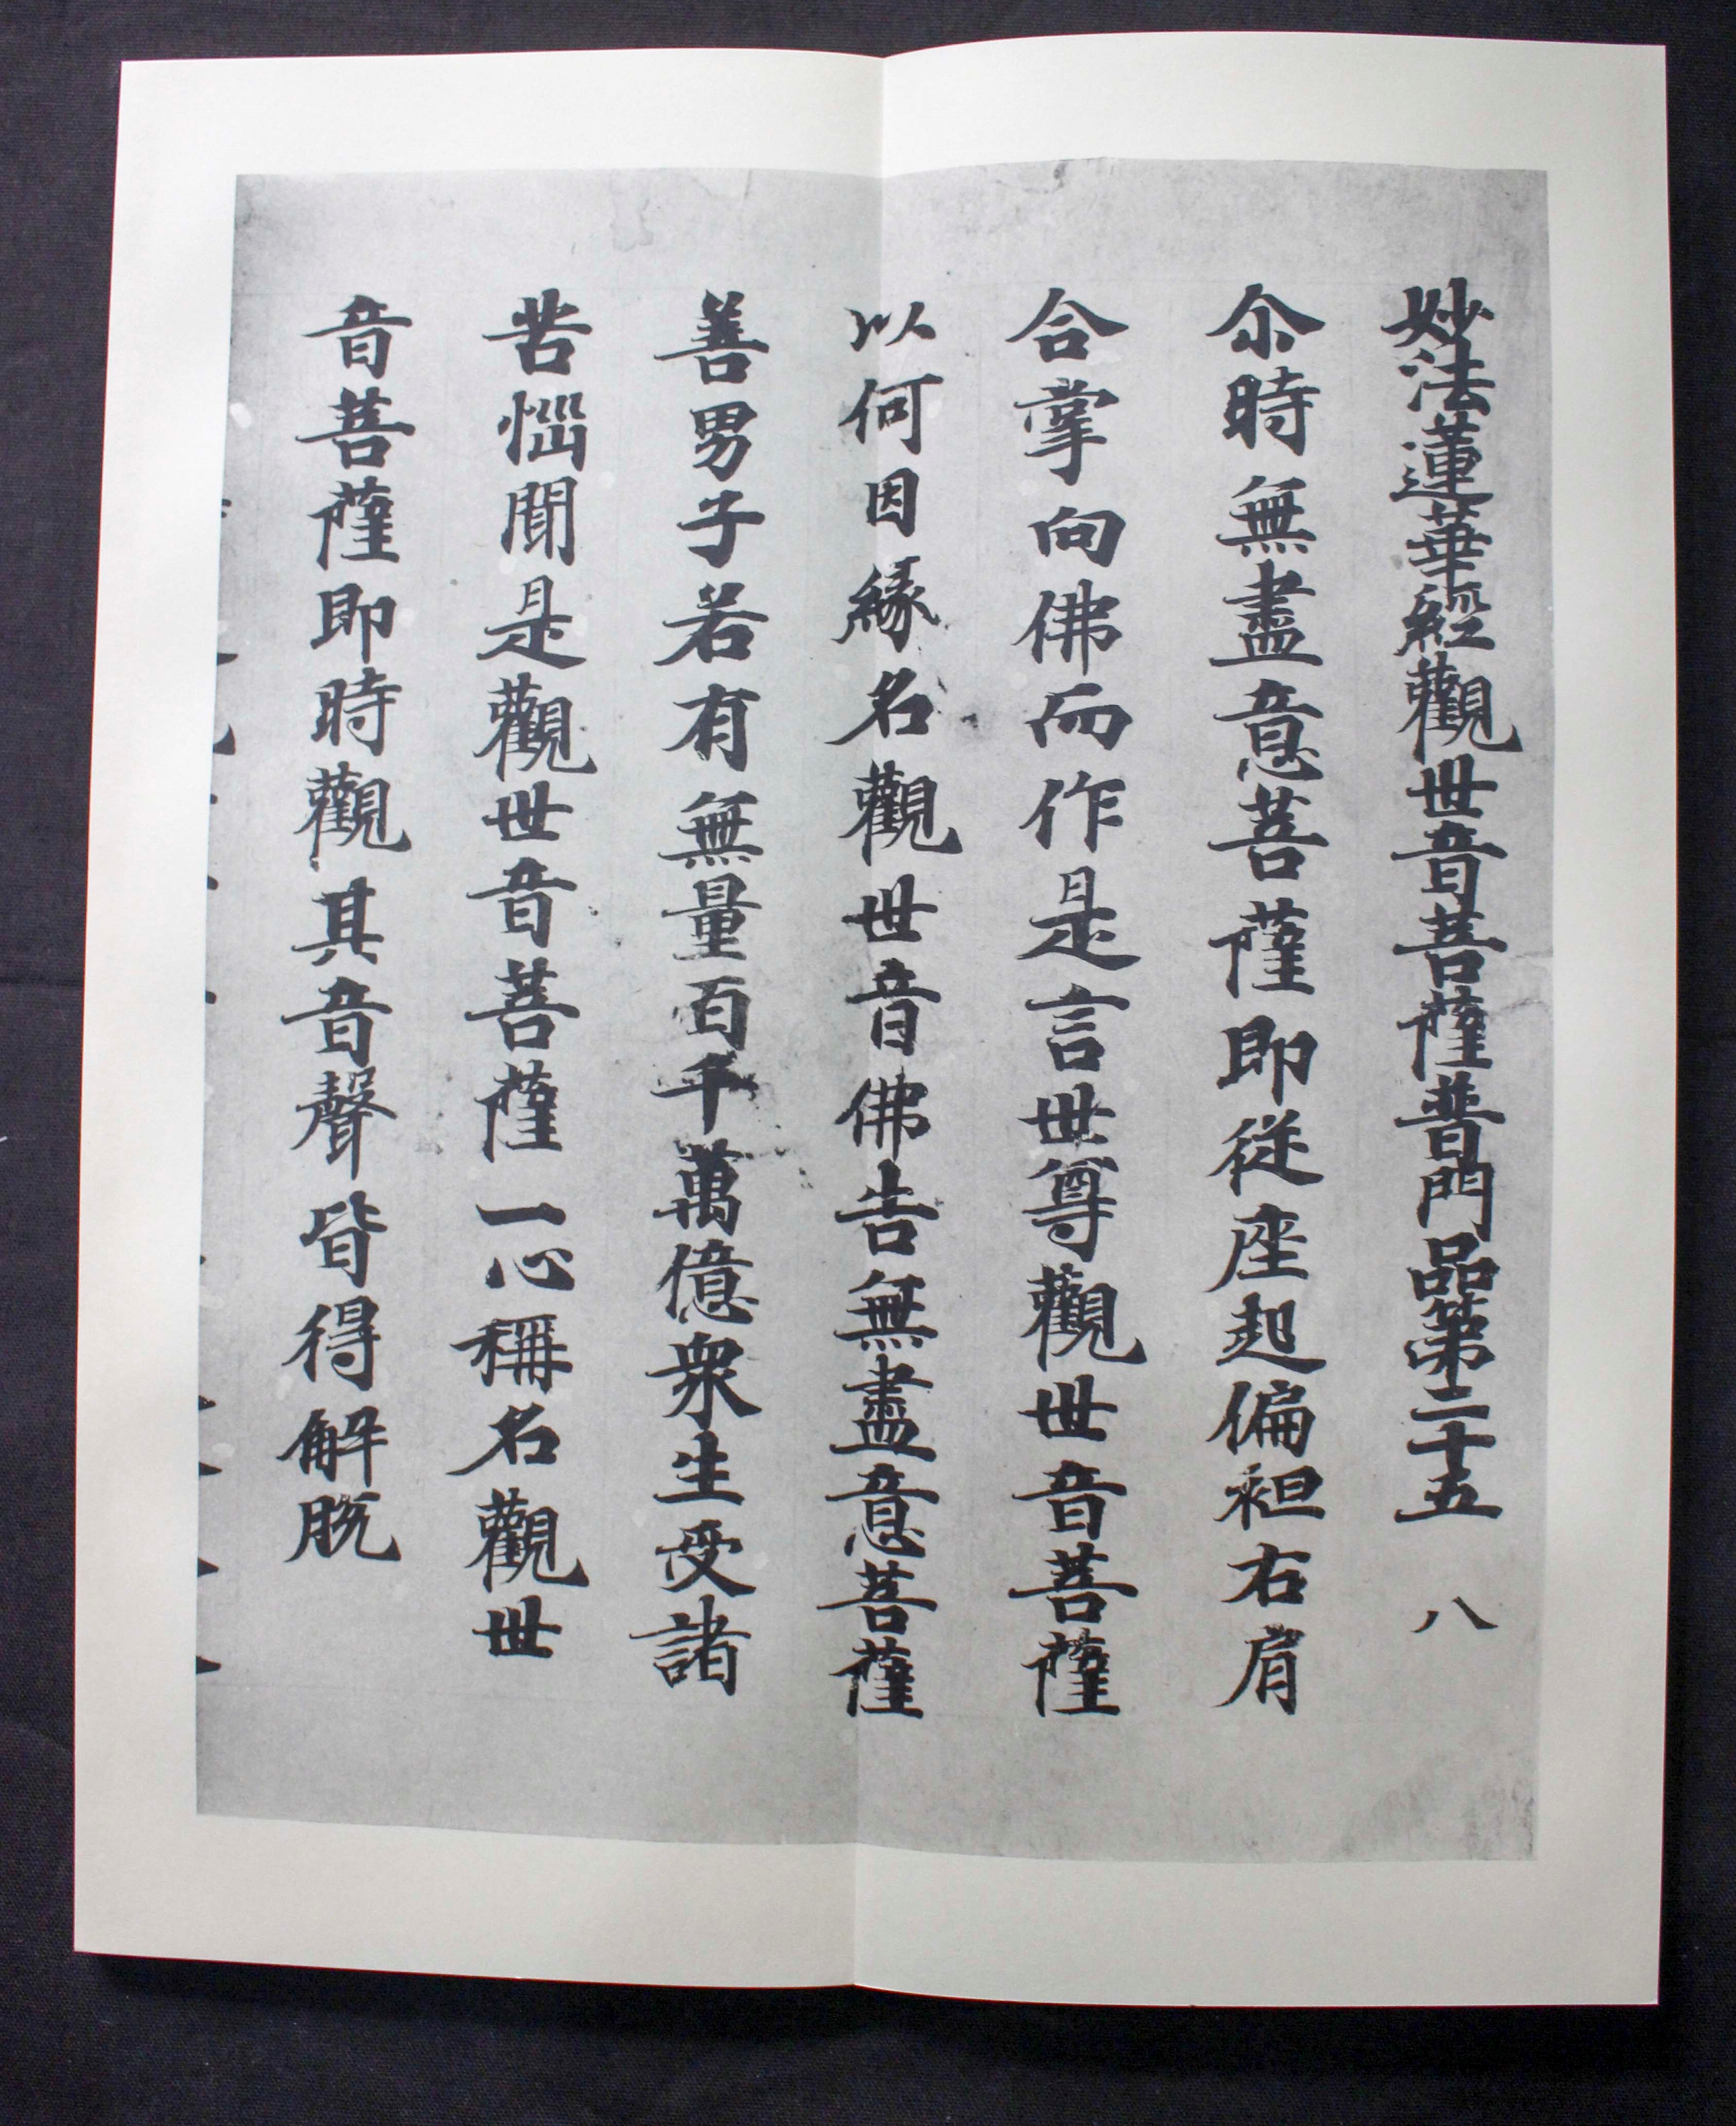 妙法蓮華經觀世音菩薩普門品第二十五 八
尒時無盡意菩薩即従座起偏袒右肩
合掌向佛而作是言世尊觀世音菩薩
以何因緣名觀世音佛告無盡意菩薩
善男子若有無量百千萬億衆生受諸
苦惱聞是觀世音菩薩一心稱名觀世
音菩薩即時觀其音聲皆得解脱